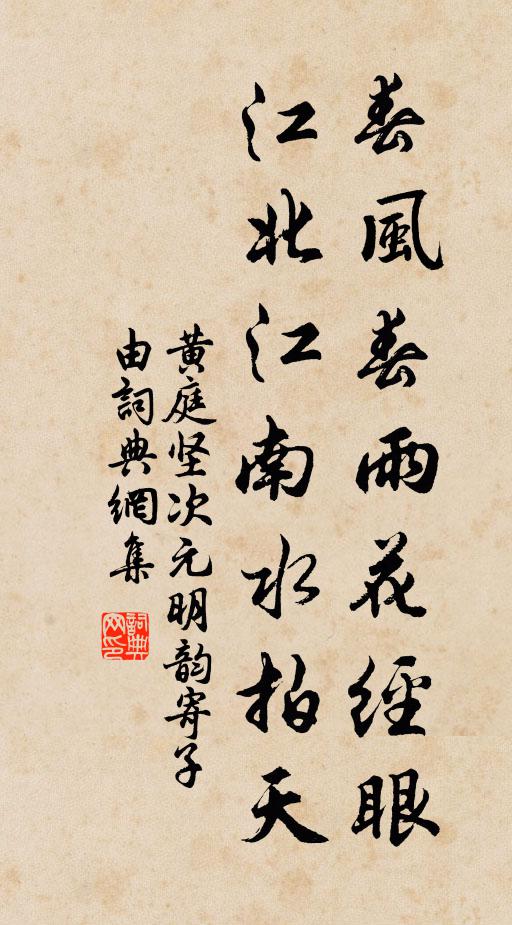 春風春雨花經眼
江北江南水拍天
黃庭坚次元明韵寄子
由詞典網集
詞典
网印